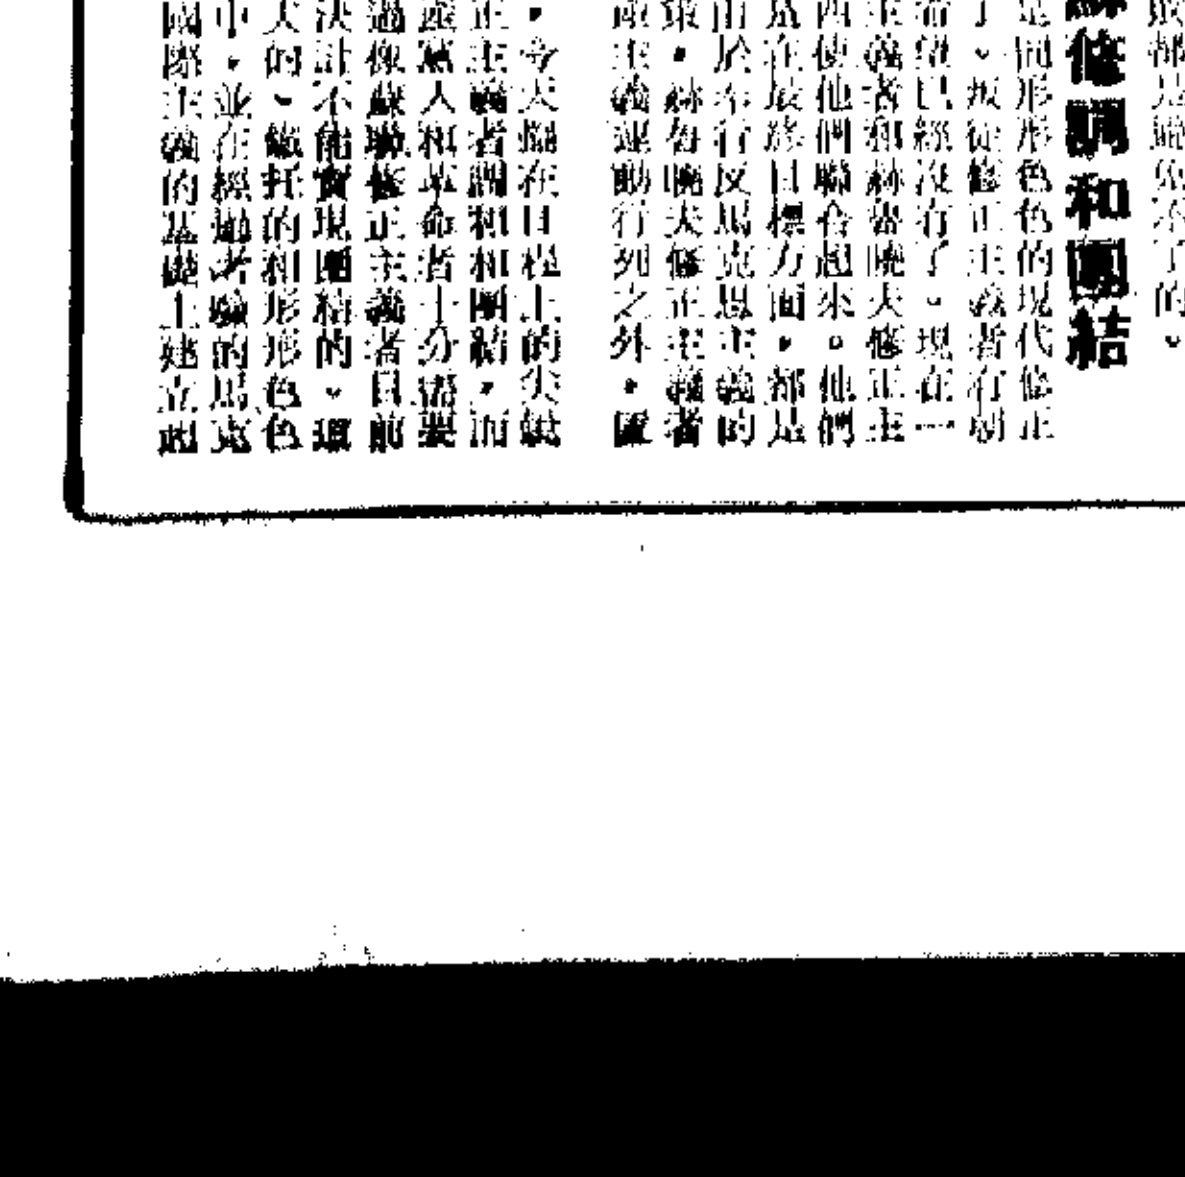 敗都是避免不了的。
蘇修調和團結
是同形形色色的現代修正
了。叛徒修正主義者有朝
希望已經沒有了。現在一
主義者和赫魯曉夫修正主
西使他們聯合起來。他們
是在最終目標方面，都是
由於奉行反馬克思主義的
策，赫魯曉夫修正主義者
產主義運動行列之外，匯
，今天擺在日程上的尖銳
正主義者調和和團結，而
產黨人和革命者十分需要
過像蘇聯修正主義者目前
決計不能實現團結的。環
大的、鐵托的和形形色色
中，並在經過考驗的馬克
國際主義的基礎上建立起